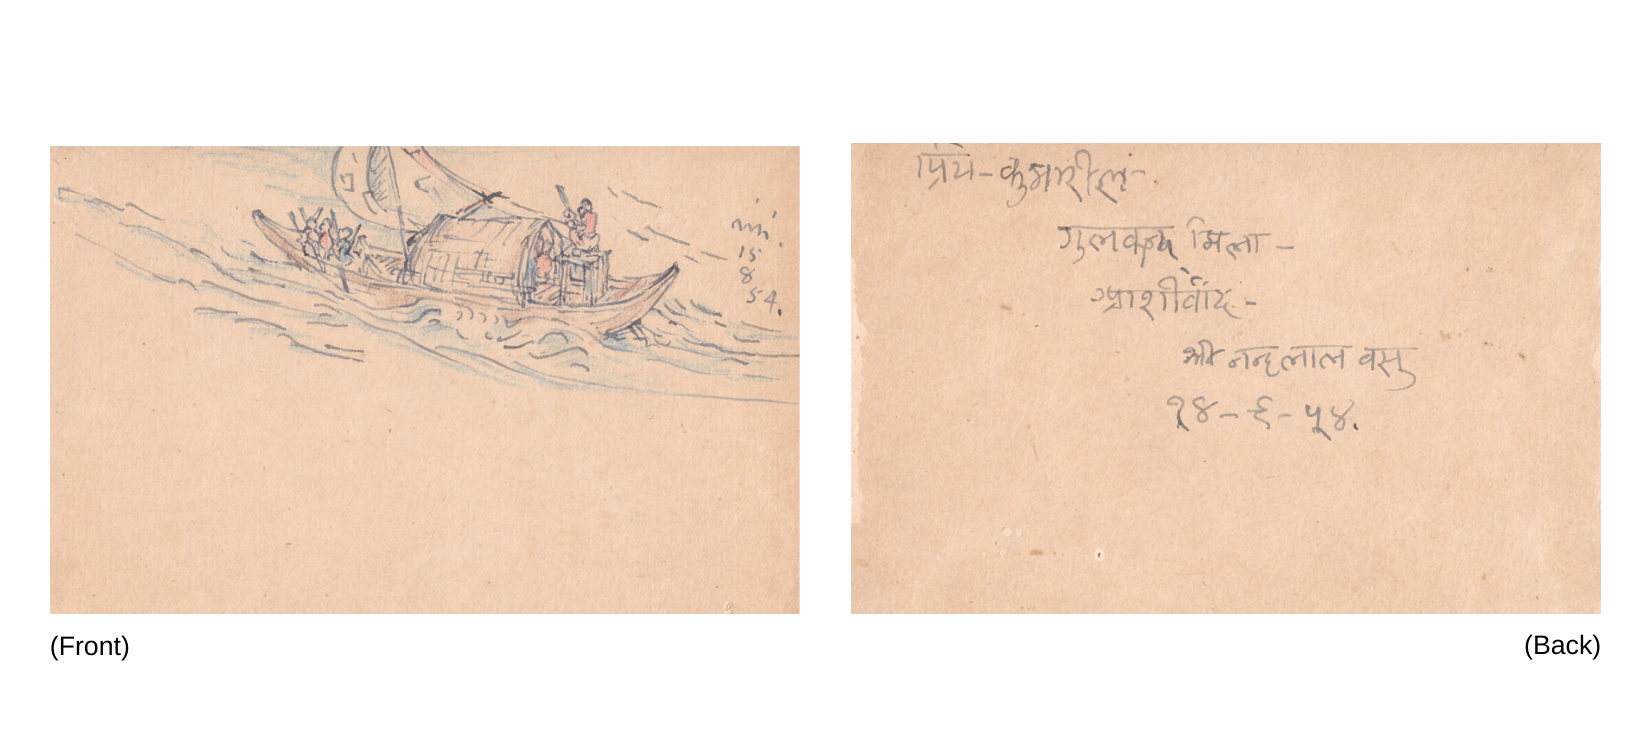 15
8
54.
(Front)
प्रिय-कुमारील-
गुलकन्द मिला-
आशीर्वाद-
श्री नन्दलाल वसु
१४-६-५४.
(Back)